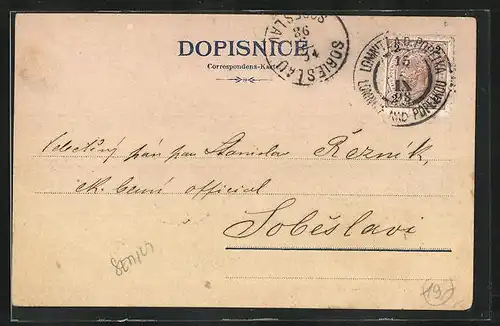 DOPISNICE
Correspondenz-Karte
SOBIESLAU
SOBĚSLAV
LOMNITZ A. D. POPELKA
LOMNICE NAD POPELKOU
Veletěný pán pan Stanislav Řezník,
official
Soběslavi
19